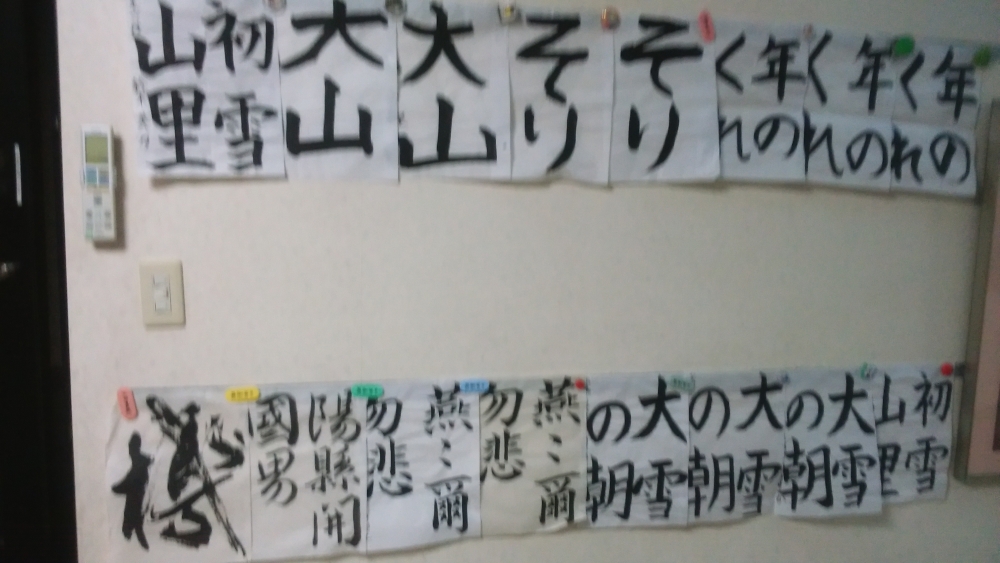 年の
くれ
年の
くれ
年の
くれ
そり
そり
大山
大山
初雪
山里
初雪
山里
大雪
の朝
大雪
の朝
大雪
の朝
燕〻爾
勿悲
燕〻爾
勿悲
陽縣開
國男